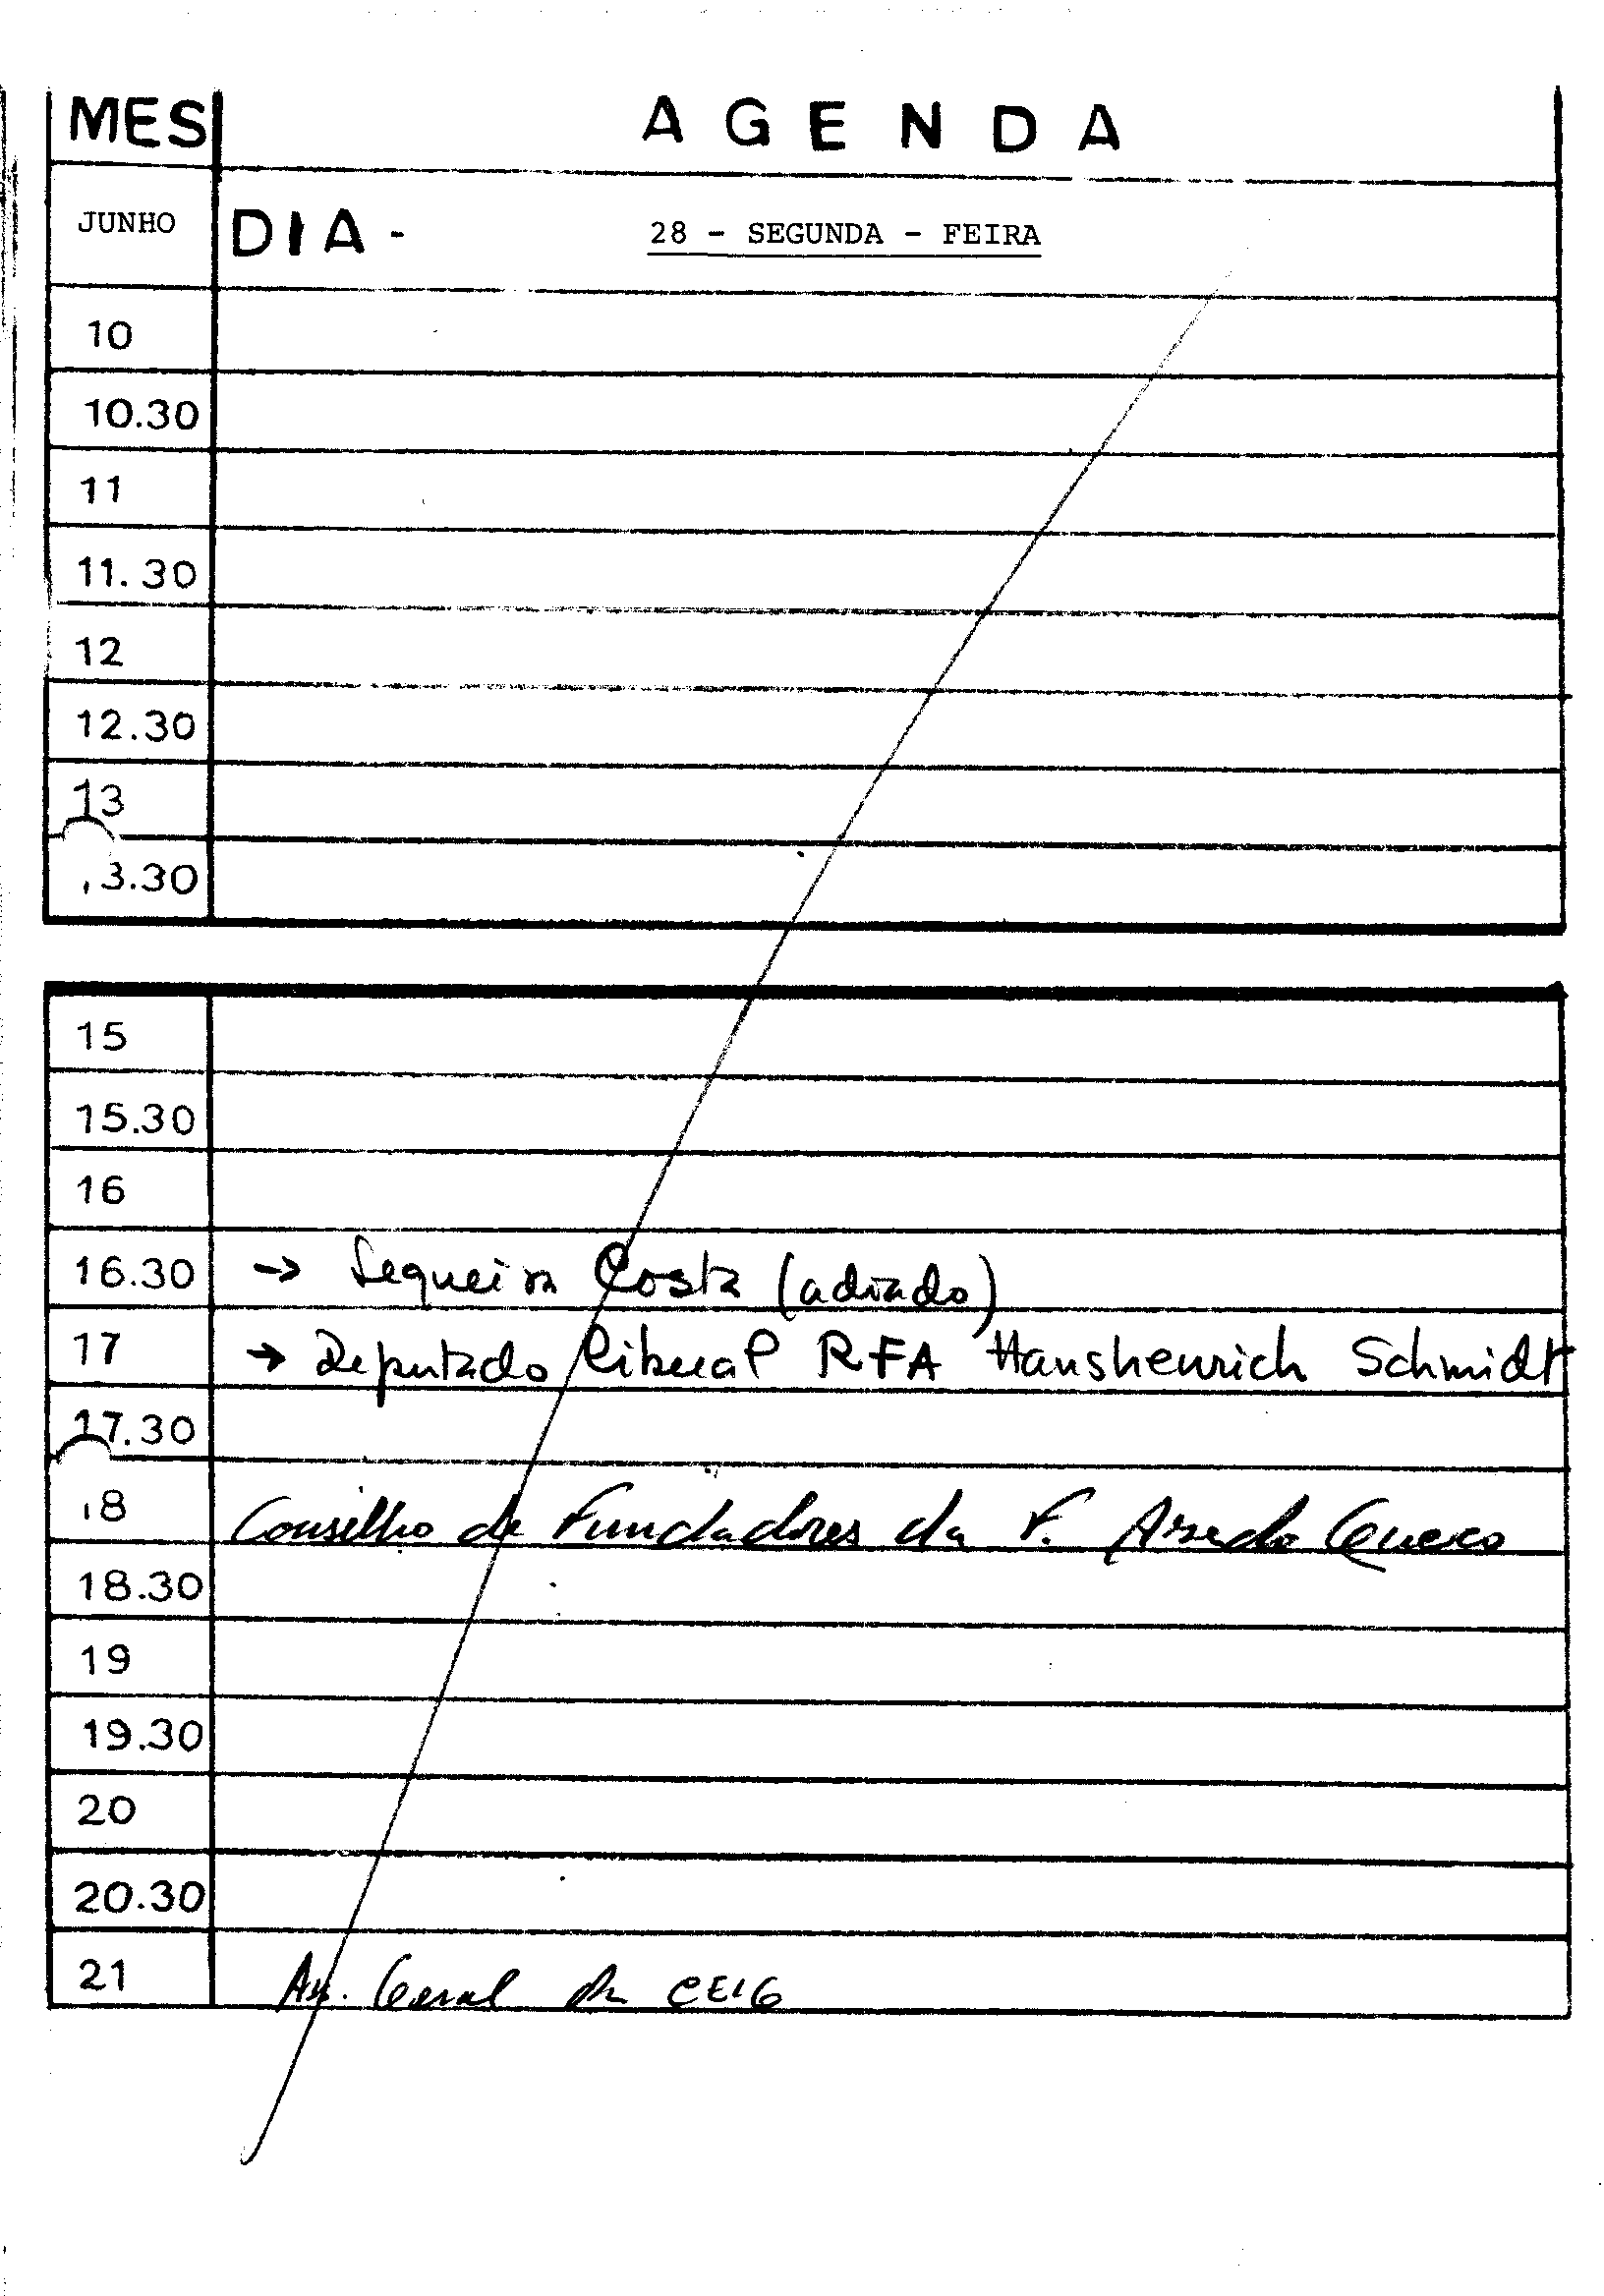 MES AGENDA
JUNHO DIA - 28 - SEGUNDA - FEIRA
10
10.30
11
11.30
12
12.30
13
13.30
15
15.30
16
16.30 → Sequeira Costa (adiado)
17 → Deputado liberal RFA Hanshenrich Schmidt
17.30
18 Conselho de Fundadores da F. Azedo Gneco
18.30
19
19.30
20
20.30
21 Geral da CEIG